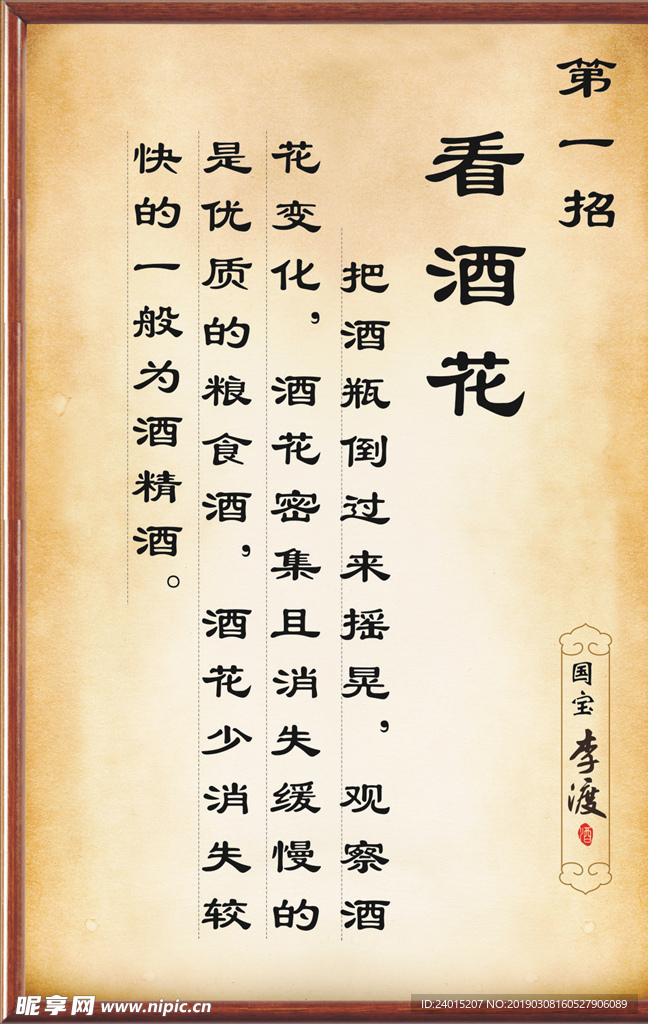 第一招
看酒花
把酒瓶倒过来摇晃，观察酒
花变化，酒花密集且消失缓慢的
是优质的粮食酒，酒花少消失较
快的一般为酒精酒。
国宝李渡
酒
昵享网 www.nipic.cn
ID:24015207 NO:20190308160527906089